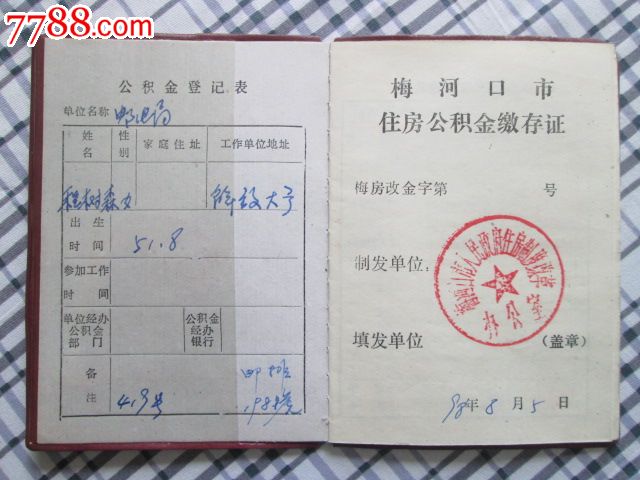 7788.com
公积金登记表
单位名称 邮电局
姓名 性别 家庭住址 工作单位地址
程树森 女
出生时间 51.8
参加工作时间
单位经办公积金部门 公积金经办银行
备注 4.9号
梅河口市
住房公积金缴存证
梅房改金字第 号
制发单位：
梅河口市人民政府住房制度改革
办公室
填发单位 (盖章)
98年8月5日